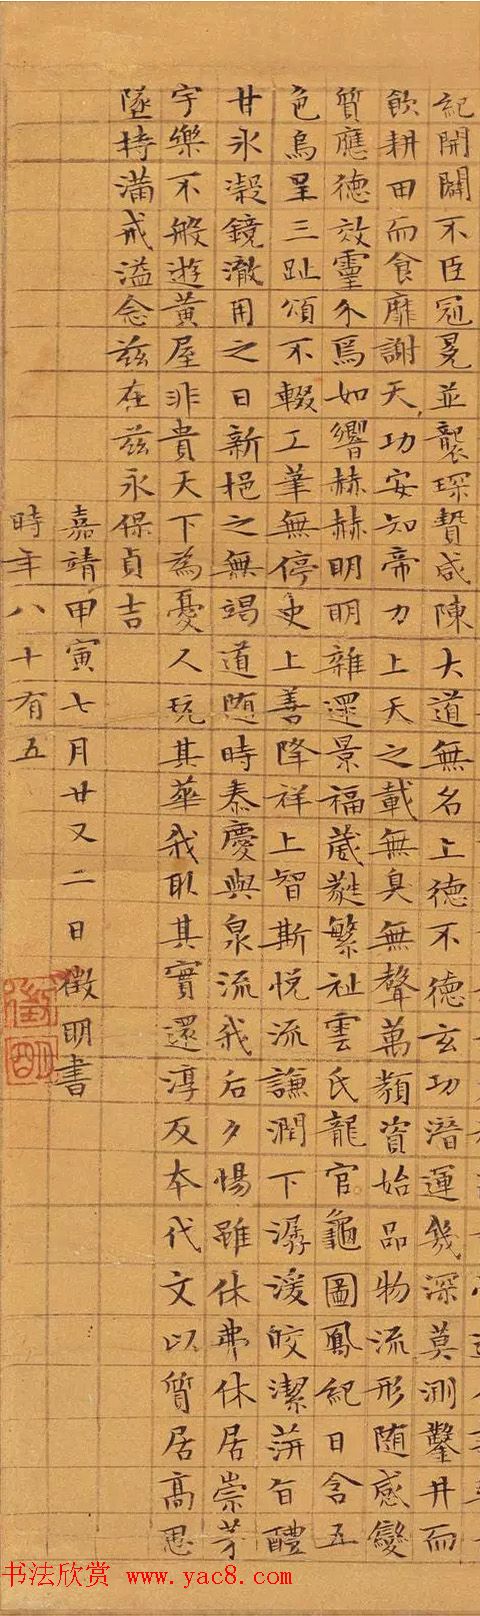 紀開闢不臣冠冕並襲琛贄咸陳大道無名上德不德玄功潛運幾深莫測鑿井而
飲耕田而食靡謝天功安知帝力上天之載無臭無聲萬類資始品物流形随感變
質應德效靈介焉如響赫赫明明雜遝景福葳蕤繁祉雲氏龍官龜圖鳳紀日含五
色烏呈三趾頌不輟工筆無停史上善降祥上智斯悅流謙潤下潺湲皎潔蓱旨醴
甘氷凝鏡澈用之日新挹之無竭道随時泰慶與泉流我后夕惕雖休弗休居崇茅
宇樂不般遊黃屋非貴天下為憂人玩其華我取其實還淳反本代文以質居高思
墜持滿戒溢念茲在茲永保貞吉
嘉靖甲寅七月廿又二日徵明書
時年八十有五
徵明
书法欣赏 www.yac8.com